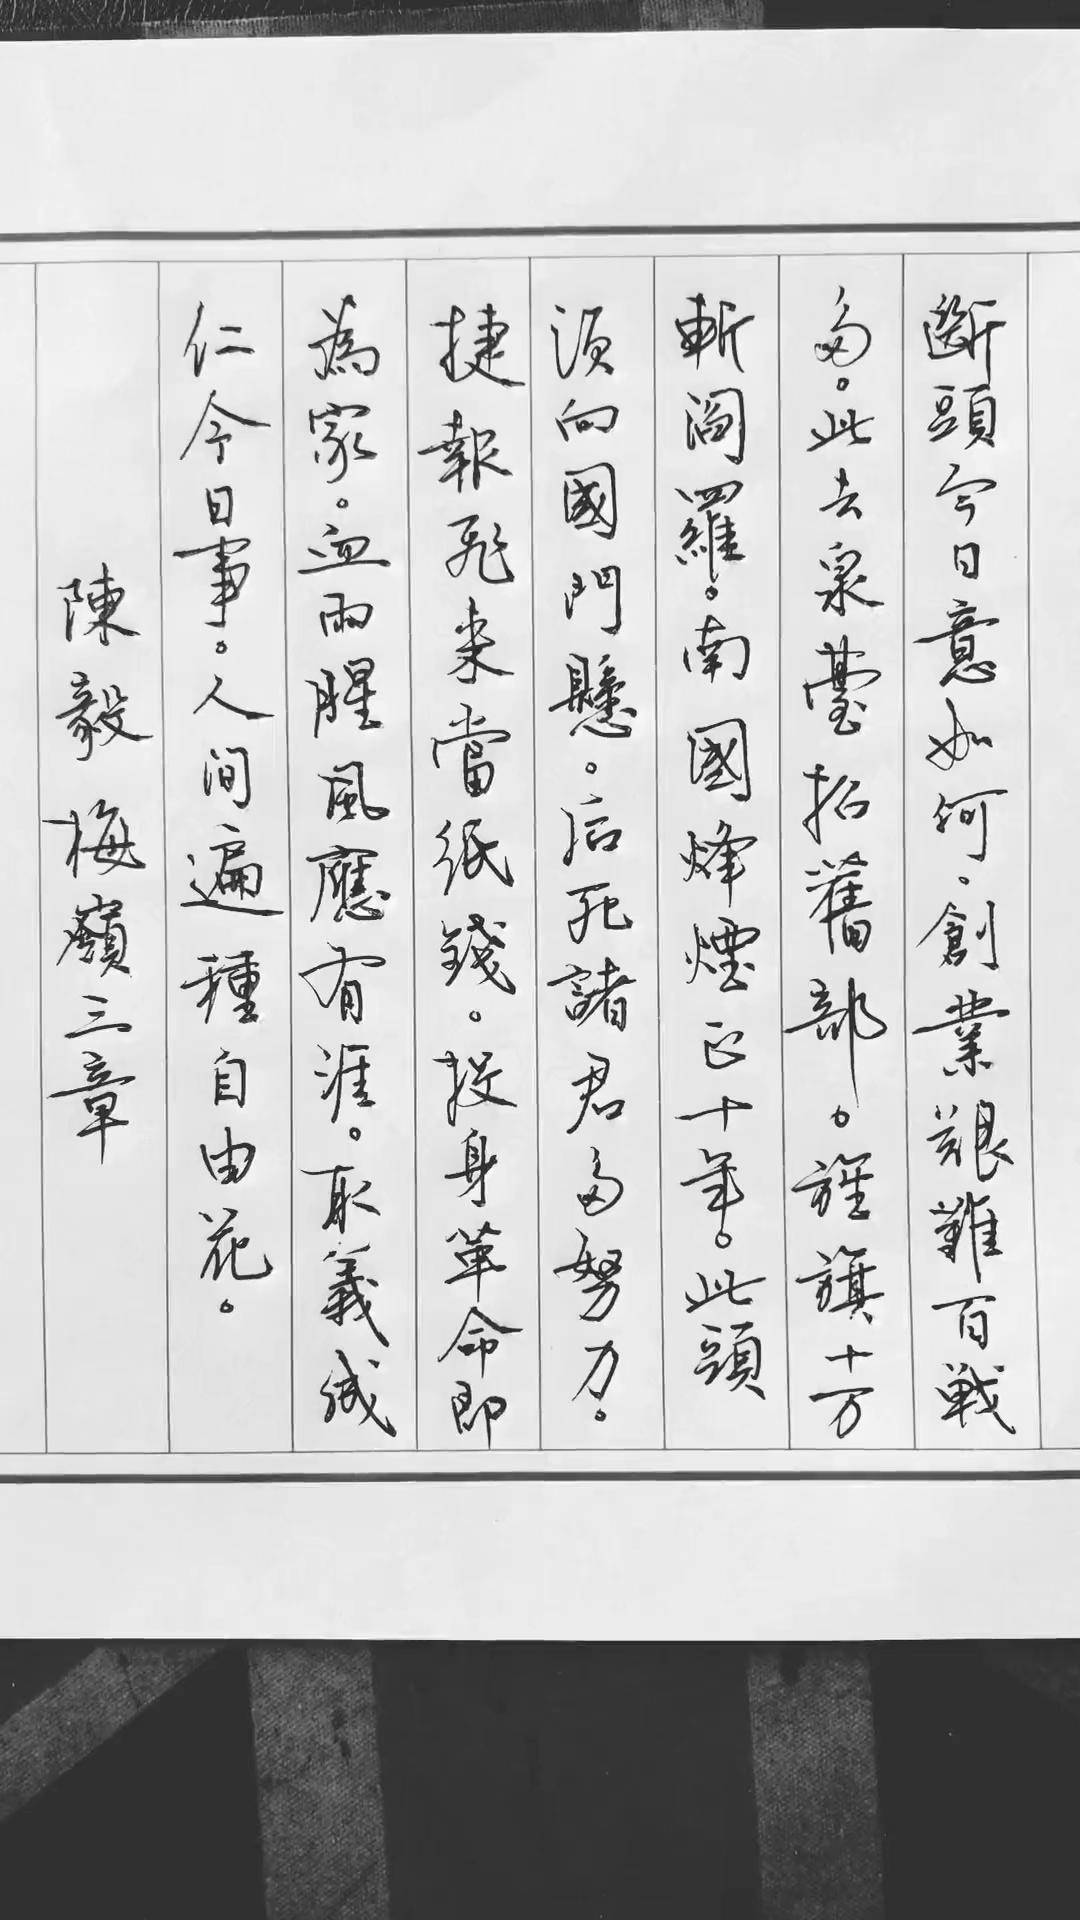 斷頭今日意如何。創業艱難百戦
多。此去泉臺招舊部。旌旗十万
斬閻羅。南國烽煙正十年。此頭
須向國門懸。后死諸君多努力。
捷報飛来當紙錢。投身革命即
為家。血雨腥風應有涯。取義成
仁今日事。人间遍種自由花。
陳毅梅嶺三章